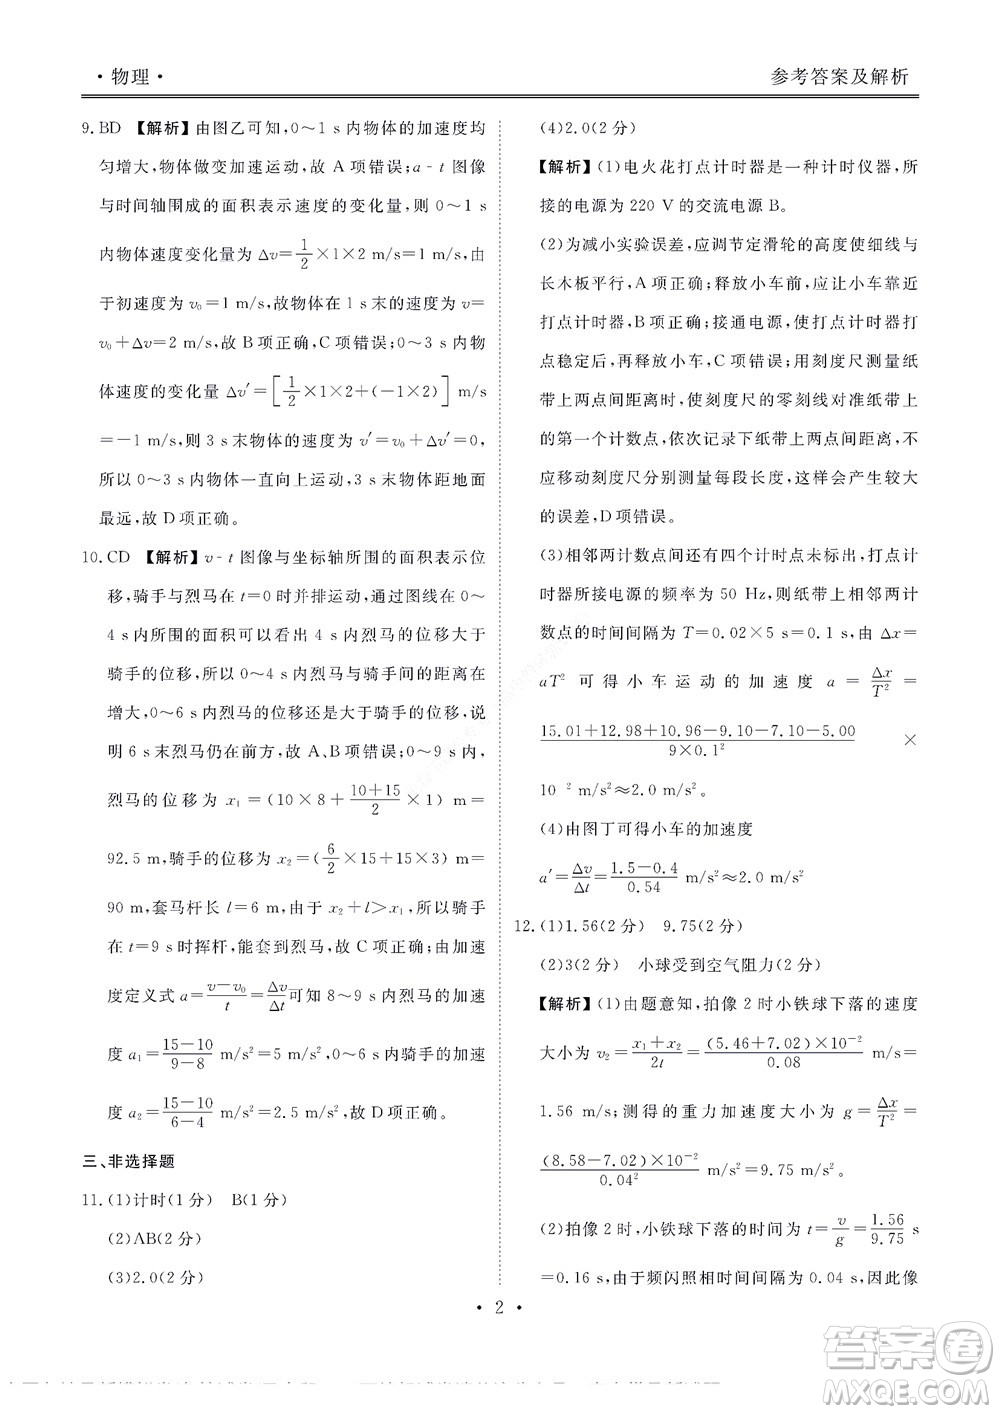 · 物理 ·
参考答案及解析
9. BD 【解析】由图乙可知,0～1 s内物体的加速度均
匀增大,物体做变加速运动,故 A 项错误;a - t 图像
与时间轴围成的面积表示速度的变化量,则 0～1 s
内物体速度变化量为 Δv=1/2×1×2 m/s=1 m/s,由
于初速度为 v₀=1 m/s,故物体在 1 s 末的速度为 v=
v₀+Δv=2 m/s,故 B 项正确,C 项错误;0～3 s 内
物体速度的变化量 Δv′=[1/2×1×2+(-1×2)] m/s
=-1 m/s,则 3 s 末物体的速度为 v′=v₀+Δv′=0,
所以 0～3 s 内物体一直向上运动,3 s 末物体距地面
最远,故 D 项正确。
10. CD 【解析】v - t 图像与坐标轴所围的面积表示位
移,骑手与烈马在 t=0 时并排运动,通过图线在 0～
4 s 内所围的面积可以看出 4 s 内烈马的位移大于
骑手的位移,所以 0～4 s 内烈马与骑手的距离在
增大,0～6 s 内烈马的位移还是大于骑手的位移,说
明 6 s 末烈马仍在前方,故 A、B 项错误;0～9 s 内,
烈马的位移为 x₁=(10×8+(10+15)/2×1) m=
92.5 m,骑手的位移为 x₂=(6/2×15+15×3) m=
90 m,套马杆长 l=6 m,由于 x₂+l>x₁,所以骑手
在 t=9 s 时挥杆,能套到烈马,故 C 项正确;由加速
度定义式 a=(v-v₀)/t=Δv/Δt可知 8～9 s 内烈马的加速
度 a₁=(15-10)/(9-8) m/s²=5 m/s²,0～6 s 内骑手的加速
度 a₂=(15-10)/(6-4) m/s²=2.5 m/s²,故 D 项正确。
三、非选择题
11. (1)计时(1 分) B(1 分)
(2)AB(2 分)
(3)2.0(2 分)
(4)2.0(2 分)
【解析】(1)电火花打点计时器是一种计时仪器,所
接的电源为 220 V 的交流电源 B。
(2)为减小实验误差,应调节定滑轮的高度使细线与
长木板平行,A 项正确;释放小车前,应让小车靠近
打点计时器,B 项正确;接通电源,待打点计时器
打点稳定后,再释放小车,C 项错误;用刻度尺测量纸
带上两点间距离时,使刻度尺的零刻线对准纸带上
的第一个计数点,依次记录下纸带上两点间距离,不
应移动刻度尺分别测量每段长度,这样会产生较大
的误差,D 项错误。
(3)相邻两计数点间还有四个计时点未标出,打点计
时器所接电源的频率为 50 Hz,则纸带上相邻两计
数点的时间间隔为 T=0.02×5 s=0.1 s,由 Δx=
aT² 可得小车运动的加速度 a = Δx/T² =
(15.01+12.98+10.96-9.10-7.10-5.00)/(9×0.1²) ×
10⁻² m/s²≈2.0 m/s²。
(4)由图丁可得小车的加速度
a′=Δv/Δt=(1.5-0.4)/0.54 m/s²≈2.0 m/s²
12. (1)1.56(2 分) 9.75(2 分)
(2)3(2 分) 小球受到空气阻力(2 分)
【解析】(1)由题意知,拍像 2 时小铁球下落的速度
大小为 v₂=(x₁+x₂)/2t=(5.46+7.02)×10⁻²/0.08 m/s=
1.56 m/s;测得的重力加速度大小为 g=Δx/T²=
(8.58-7.02)×10⁻²/0.04² m/s²=9.75 m/s²。
(2)拍像 2 时,小铁球下落的时间为 t=v/g=1.56/9.75 s
=0.16 s,由于频闪照相时间间隔为 0.04 s,因此像
· 2 ·
答案圈
MXQE.COM